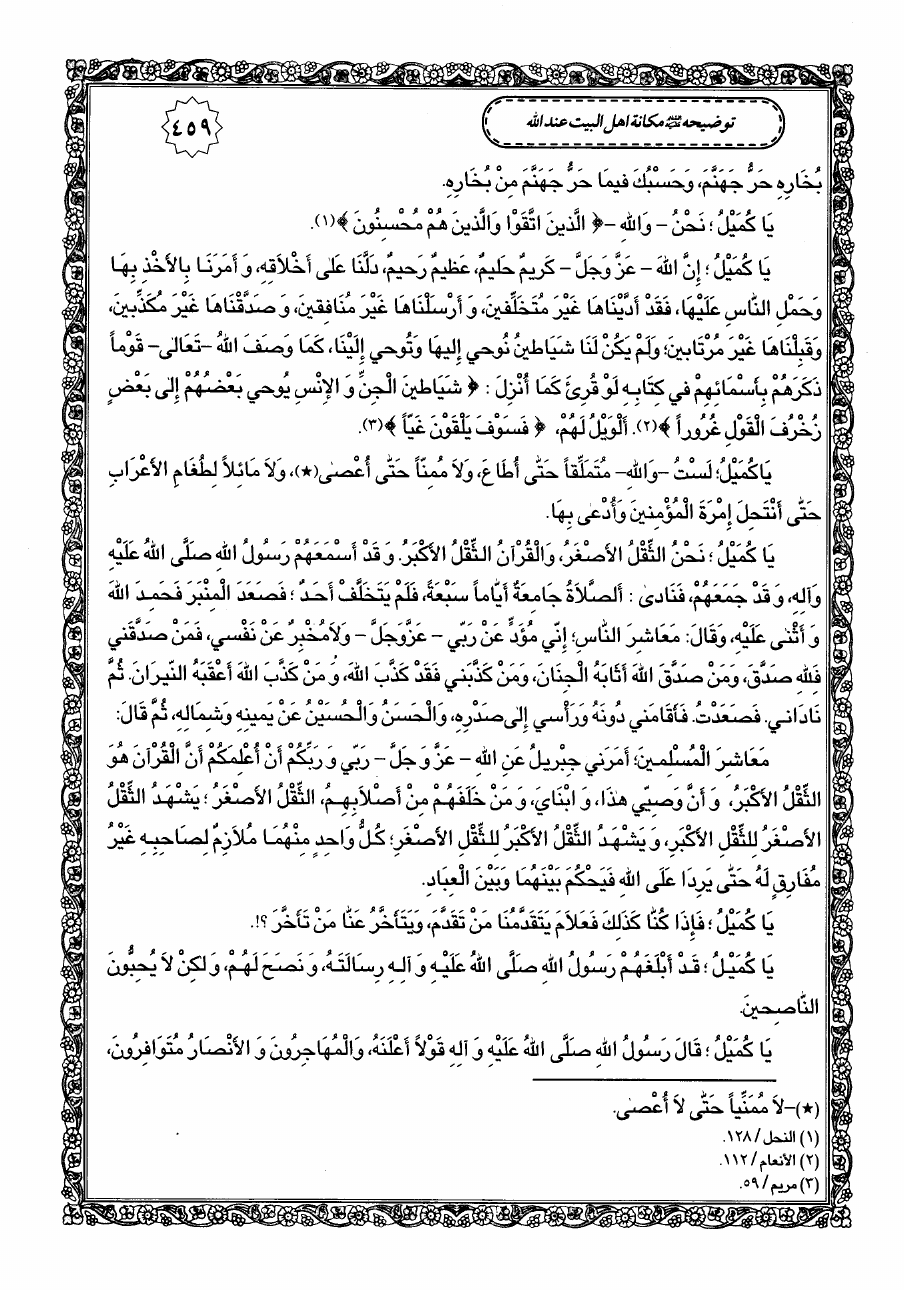 توضيحه عليه السلام مكانة اهل البيت عند الله
٤٥٩
بُخَارِهِ حَرُّ جَهَنَّمَ، وَحَسْبُكَ فيمَا حَرُّ جَهَنَّمَ مِنْ بُخَارِهِ.
يَا كُمَيْلُ؛ نَحْنُ - وَاللهِ - ﴿ الَّذينَ اتَّقَوْا وَالَّذينَ هُمْ مُحْسِنُونَ ﴾(١).
يَا كُمَيْلُ؛ إِنَّ اللهَ - عَزَّ وَجَلَّ - كَريمٌ حَليمٌ، عَظيمٌ رَحيمٌ، دَلَّنَا عَلىٰ أَخْلَاقِهِ، وَ أَمَرَنَا بِالأَخْذِ بِهَا
وَحَمْلِ النّاسِ عَلَيْهَا، فَقَدْ أَدَّيْنَاهَا غَيْرَ مُتَخَلِّفينَ، وَ أَرْسَلْنَاهَا غَيْرَ مُنَافِقينَ، وَ صَدَّقْنَاهَا غَيْرَ مُكَذِّبينَ،
وَقَبِلْنَاهَا غَيْرَ مُرْتَابينَ؛ وَلَمْ يَكُنْ لَنَا شَيَاطينُ نُوحي إِليهَا وَتُوحي إِلَيْنَا، كَمَا وَصَفَ اللهُ -تَعَالىٰ- قَوْماً
ذَكَرَهُمْ بِأَسْمَائِهِمْ في كِتَابِهِ لَوْ قُرِئَ كَمَا أُنْزِلَ : ﴿ شَيَاطينَ الْجِنِّ وَ الإِنْسِ يُوحي بَعْضُهُمْ إِلىٰ بَعْضٍ
زُخْرُفَ الْقَوْلِ غُرُوراً ﴾(٢). أَلْوَيْلُ لَهُمْ، ﴿ فَسَوْفَ يَلْقَوْنَ غَيّاً ﴾(٣).
يَاكُمَيْلُ؛ لَسْتُ -وَاللهِ- مُتَمَلِّقاً حَتّىٰ أُطَاعَ، وَلاَ مُمَنّاً حَتّىٰ أُعْصىٰ(★)، وَلاَ مَائِلاً لِطَغَامِ الأَعْرَابِ
حَتّىٰ أَنْتَحِلَ إِمْرَةَ الْمُؤْمِنينَ وَأُدْعىٰ بِهَا.
يَا كُمَيْلُ؛ نَحْنُ الثِّقْلُ الأَصْغَرُ، وَالْقُرْآنُ الثِّقْلُ الأَكْبَرُ. وَ قَدْ أَسْمَعَهُمْ رَسُولُ اللهِ صَلَّى اللهُ عَلَيْهِ
وَآلِهِ، وَ قَدْ جَمَعَهُمْ، فَنَادىٰ : أَلصَّلاَةُ جَامِعَةٌ أَيّاماً سَبْعَةً، فَلَمْ يَتَخَلَّفْ أَحَدٌ؛ فَصَعَدَ الْمِنْبَرَ فَحَمِدَ اللهَ
وَ أَثْنىٰ عَلَيْهِ، وَقَالَ: مَعَاشِرَ النّاسِ؛ إِنّي مُؤَدٍّ عَنْ رَبّي - عَزَّوَجَلَّ - وَلاَمُخْبِرٌ عَنْ نَفْسي، فَمَنْ صَدَّقَني
فَلِلّٰهِ صَدَّقَ، وَمَنْ صَدَّقَ اللهَ أَثَابَهُ الْجِنَانَ، وَمَنْ كَذَّبَني فَقَدْ كَذَّبَ اللهَ، وَ مَنْ كَذَّبَ اللهَ أَعْقَبَهُ النّيرَانَ. ثُمَّ
نَادَاني. فَصَعَدْتُ. فَأَقَامَني دُونَهُ وَرَأْسي إِلىٰ صَدْرِهِ، وَالْحَسَنُ وَالْحُسَيْنُ عَنْ يَمينِهِ وَشِمَالِهِ، ثُمَّ قَالَ:
مَعَاشِرَ الْمُسْلِمينَ؛ أَمَرَني جِبْريلُ عَنِ اللهِ - عَزَّ وَ جَلَّ - رَبّي وَ رَبِّكُمْ أَنْ أُعْلِمَكُمْ أَنَّ الْقُرْآنَ هُوَ
الثِّقْلُ الأَكْبَرُ، وَ أَنَّ وَصِيّي هٰذَا، وَ ابْنَايَ، وَ مَنْ خَلَفَهُمْ مِنْ أَصْلاَبِهِمُ، الثِّقْلُ الأَصْغَرُ؛ يَشْهَدُ الثِّقْلُ
الأَصْغَرُ لِلثِّقْلِ الأَكْبَرِ، وَ يَشْهَدُ الثِّقْلُ الأَكْبَرُ لِلثِّقْلِ الأَصْغَرِ؛ كُلُّ وَاحِدٍ مِنْهُمَا مُلاَزِمٌ لِصَاحِبِهِ غَيْرُ
مُفَارِقٍ لَهُ حَتّىٰ يَرِدَا عَلَى اللهِ فَيَحْكُمَ بَيْنَهُمَا وَبَيْنَ الْعِبَادِ.
يَا كُمَيْلُ؛ فَإِذَا كُنّا كَذَلِكَ فَعَلاَمَ يَتَقَدَّمُنَا مَنْ تَقَدَّمَ، وَيَتَأَخَّرُ عَنّا مَنْ تَأَخَّرَ؟!.
يَا كُمَيْلُ؛ قَدْ أَبْلَغَهُمْ رَسُولُ اللهِ صَلَّى اللهُ عَلَيْهِ وَ آلِهِ رِسَالَتَهُ، وَ نَصَحَ لَهُمْ، وَ لكِنْ لاَ يُحِبُّونَ
النّاصِحينَ.
يَا كُمَيْلُ؛ قَالَ رَسُولُ اللهِ صَلَّى اللهُ عَلَيْهِ وَ آلِهِ قَوْلاً أَعْلَنَهُ، وَالْمُهَاجِرُونَ وَ الأَنْصَارُ مُتَوَافِرُونَ،
(★)-لاَ مُمَنِّياً حَتّىٰ لاَ أُعْصىٰ.
(١) النحل / ١٢٨.
(٢) الأنعام / ١١٢.
(٣) مريم / ٥٩.